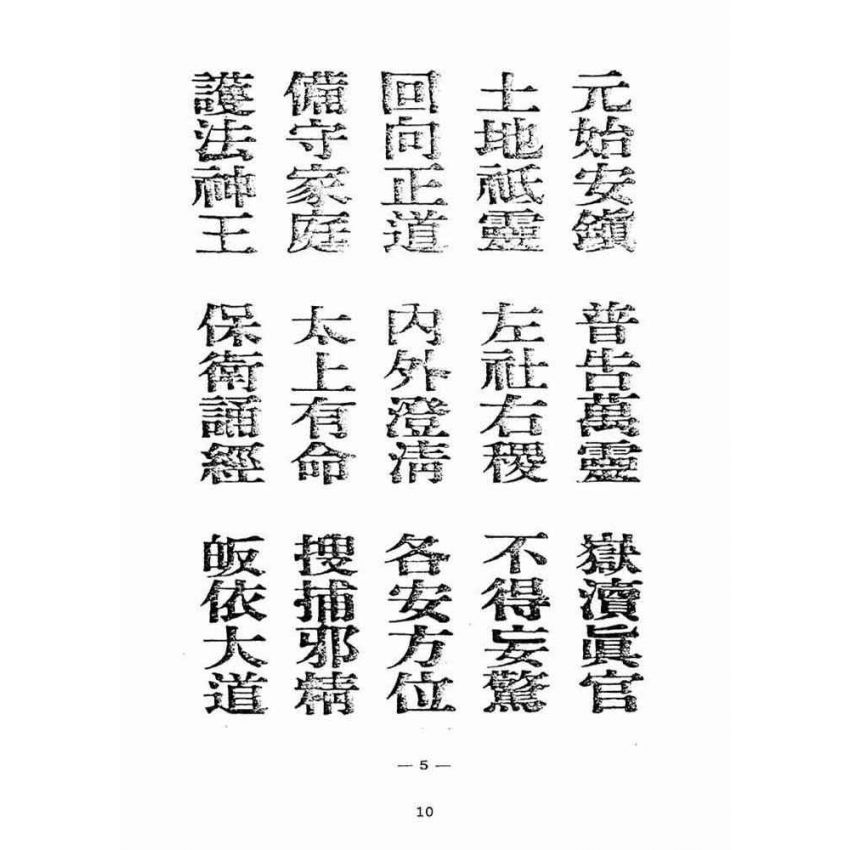 元始安鎮 普告萬靈 嶽瀆眞官
土地祇靈 左社右稷 不得妄驚
回向正道 內外澄清 各安方位
備守家庭 太上有命 搜捕邪精
護法神王 保衛誦經 皈依大道
— 5 —
10